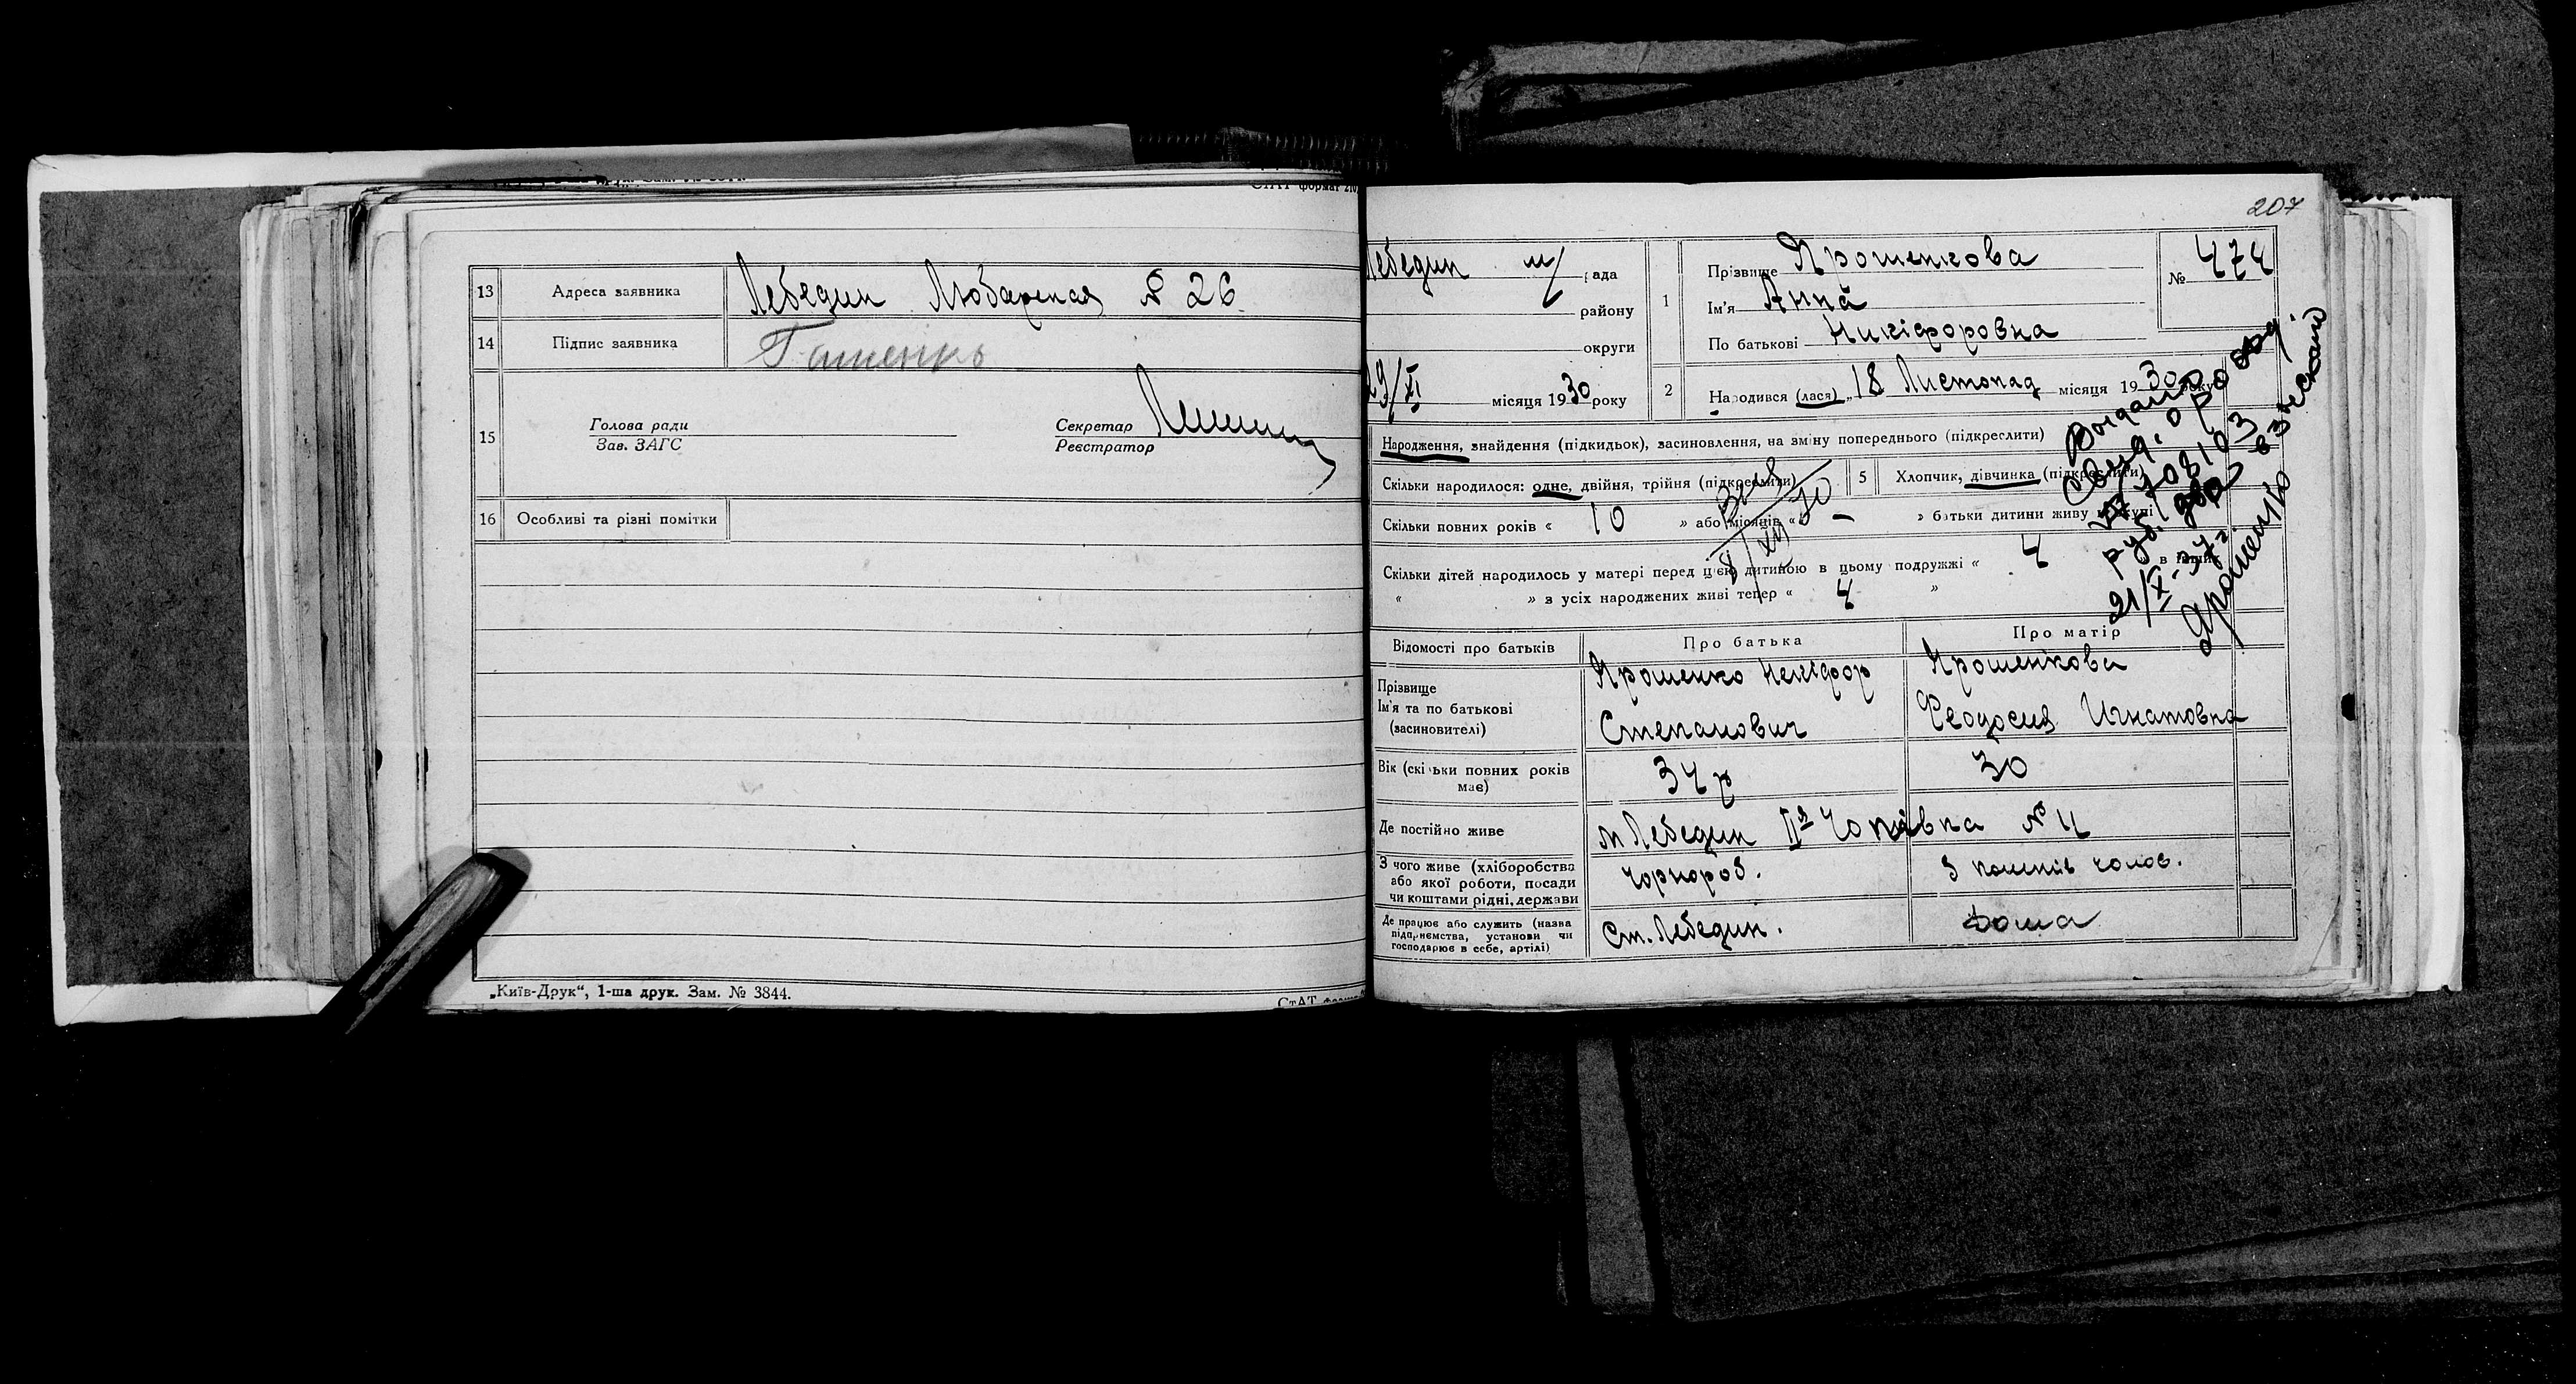 13 Адреса заявника Лебедин Любарская № 26
14 Підпис заявника
15 Голова ради
Зав. ЗАГС
Секретар
Реєстратор
16 Особливі та різні помітки
„Київ-Друк“, 1-ша друк. Зам. № 3844.
СтАТ формат 210
207
Лебедин м/ рада
району
округи
29/XI місяця 1930 року
1 Прізвище Ярошенкова
Ім'я Анна
По батькові Никіфоровна
№ 474
2 Народився (лася) „18 Листопад місяця 1930 року
Народження, знайдення (підкидьок), засиновлення, на зміну попереднього (підкреслити)
Скільки народилося: одне, двійня, трійня (підкреслити)
5 Хлопчик, дівчинка (підкреслити)
Скільки повних років « 10 » або місяців « — » батьки дитини живу
Скільки дітей народилось у матері перед цією дитиною в цьому подружжі « 4
« » з усіх народжених живі тепер « 4 »
8/XII 30
Выдано
Свид. о
708103
руб.
21/X-37г
Ярошенко
Відомості про батьків
Про батька
Про матір
Прізвище
Ім'я та по батькові
(засиновителі)
Ярошенко Никіфор
Степанович
Ярошенкова
Феодосия Игнатовна
Вік (скільки повних років
має)
34 р
30
Де постійно живе
м Лебедин IIя
З чого живе (хліборобства
або якої роботи, посади
чи коштами рідні, держави
Чорнороб.
З коштів чолов.
Де працює або служить (назва
підприємства, установи чи
господарює в себе, артілі)
Ст. Лебедин.
Дома